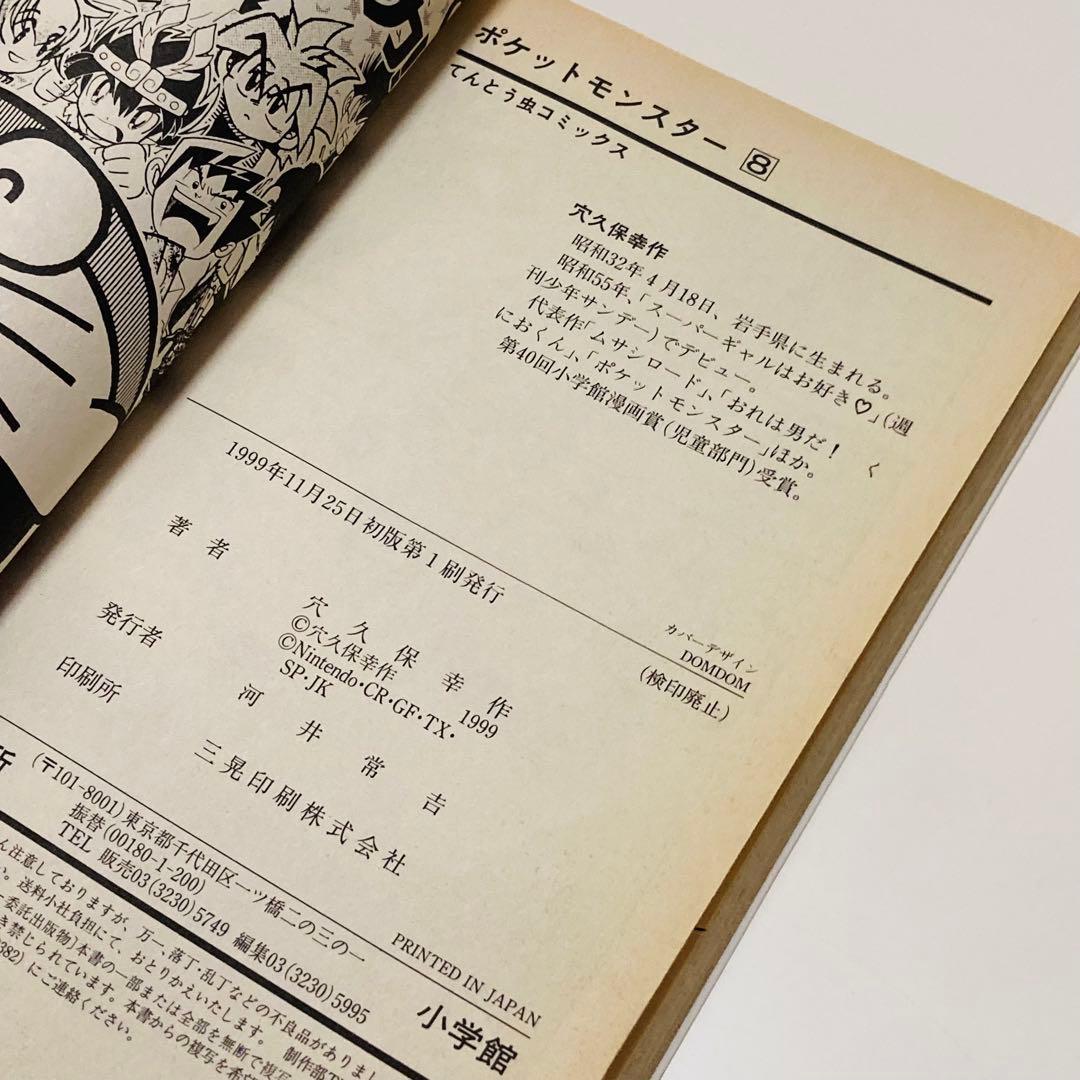 ポケットモンスター 8
てんとう虫コミックス
穴久保幸作
昭和32年4月18日、岩手県に生まれる。
昭和55年、「スーパーギャルはお好き♡」(週
刊少年サンデー)でデビュー。
代表作「ムサシロード」、「おれは男だ! く
におくん」、「ポケットモンスター」ほか。
第40回小学館漫画賞(児童部門)受賞。
1999年11月25日初版第1刷発行
カバーデザイン
DOMDOM
(検印廃止)
著者 穴久保幸作
©穴久保幸作 1999
©Nintendo・CR・GF・TX・
SP・JK
発行者 河井常吉
印刷所 三晃印刷株式会社
PRINTED IN JAPAN
所
(〒101-8001)東京都千代田区一ツ橋二の三の一
振替(00180-1-200)
TEL 販売03(3230)5749 編集03(3230)5995
小学館
ん注意しておりますが、万一、落丁・乱丁などの不良品がありまし
い。送料小社負担にて、おとりかえいたします。 制作部T
委託出版物]本書の一部または全部を無断で複写
き禁じられています。本書からの複写を希望
382)にご連絡ください。